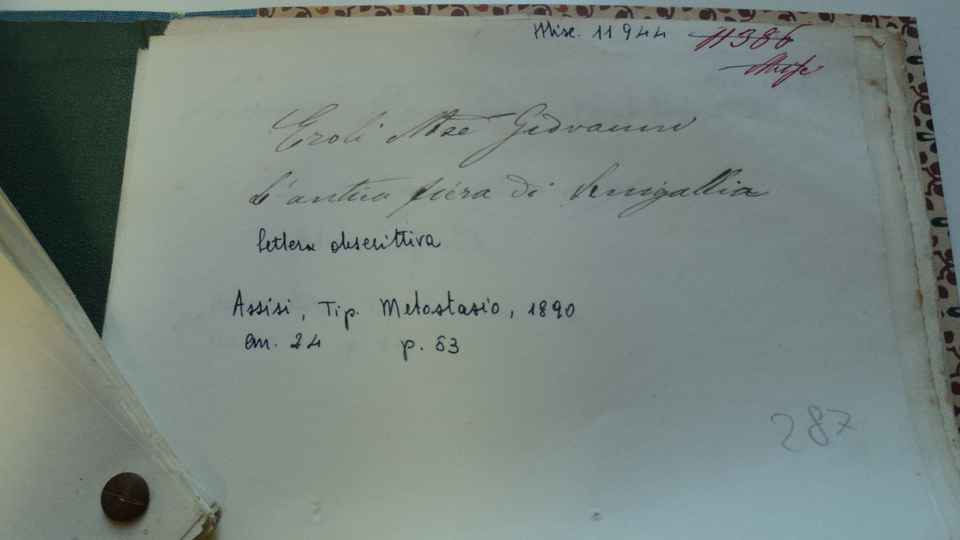 Misc. 11944
11386
Misc
Eroli Mse Giovanni
L'antica fiera di Senigallia
lettera descrittiva
Assisi, Tip. Metastasio, 1890
cm. 24 p. 53
287